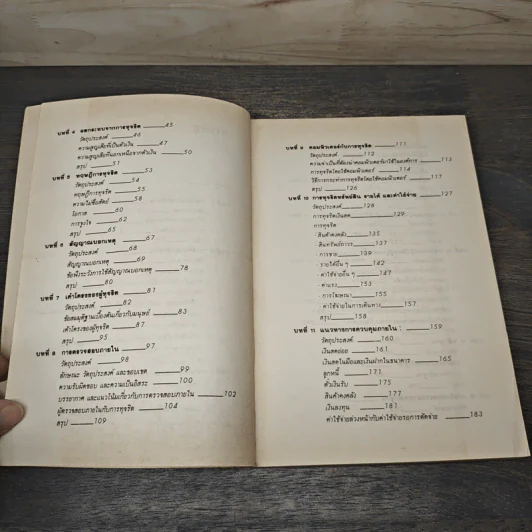 บทที่ 4 ผลกระทบจากการทุจริต ______45
วัตถุประสงค์ ______46
ความสูญเสียที่เป็นตัวเงิน ______47
ความสูญเสียที่นอกเหนือจากตัวเงิน ______50
สรุป ______51
บทที่ 5 ทฤษฎีการทุจริต ______53
วัตถุประสงค์ ______54
ทฤษฎีการทุจริต ______55
ความไม่ซื่อสัตย์ ______58
โอกาส ______60
การจูงใจ ______62
สรุป ______65
บทที่ 6 สัญญาณบอกเหตุ ______67
วัตถุประสงค์ ______68
สัญญาณบอกเหตุ ______69
ข้อพึงระวังการใช้สัญญาณบอกเหตุ ______78
สรุป ______80
บทที่ 7 เค้าโครงของผู้ทุจริต ______81
วัตถุประสงค์ ______82
ข้อสมมุติฐานเบื้องต้นเกี่ยวกับมนุษย์ ______83
เค้าโครงของผู้ทุจริต ______87
สรุป ______95
บทที่ 8 การตรวจสอบภายใน ______97
วัตถุประสงค์ ______98
ลักษณะ วัตถุประสงค์ และขอบเขต ______99
ความรับผิดชอบ และความเป็นอิสระ ______100
บรรยากาศ และแนวโน้มเกี่ยวกับการตรวจสอบภายใน ______102
ผู้ตรวจสอบภายในกับการทุจริต ______104
สรุป ______109
บทที่ 9 คอมพิวเตอร์กับการทุจริต ______111
วัตถุประสงค์ ______112
ความจำเป็นที่ต้องนำคอมพิวเตอร์มาใช้ในองค์การ ______113
การทุจริตโดยใช้คอมพิวเตอร์ ______114
วิธีการกระทำทุจริตโดยใช้คอมพิวเตอร์ ______117
สรุป ______126
บทที่ 10 การทุจริตทรัพย์สิน รายได้ และค่าใช้จ่าย ______127
วัตถุประสงค์ ______128
การทุจริตเงินสด ______129
การทุจริต
- สินค้าคงคลัง ______135
- สินทรัพย์ถาวร ______137
- การขาย ______139
- รายได้อื่น ๆ ______142
- ค่าใช้จ่ายอื่น ๆ ______147
- ค่าแรง ______153
- การโฆษณา ______155
- ค่าใช้จ่ายในการเดินทาง ______157
สรุป ______158
บทที่ 11 แนวทางการควบคุมภายใน : ______159
วัตถุประสงค์ ______160
เงินสดย่อย ______161
เงินสดในมือและเงินฝากในธนาคาร ______165
ลูกหนี้ ______171
ตั๋วเงินรับ ______175
สินค้าคงคลัง ______177
เงินลงทุน ______181
ค่าใช้จ่ายล่วงหน้ากับค่าใช้จ่ายรอการตัดจ่าย ______183